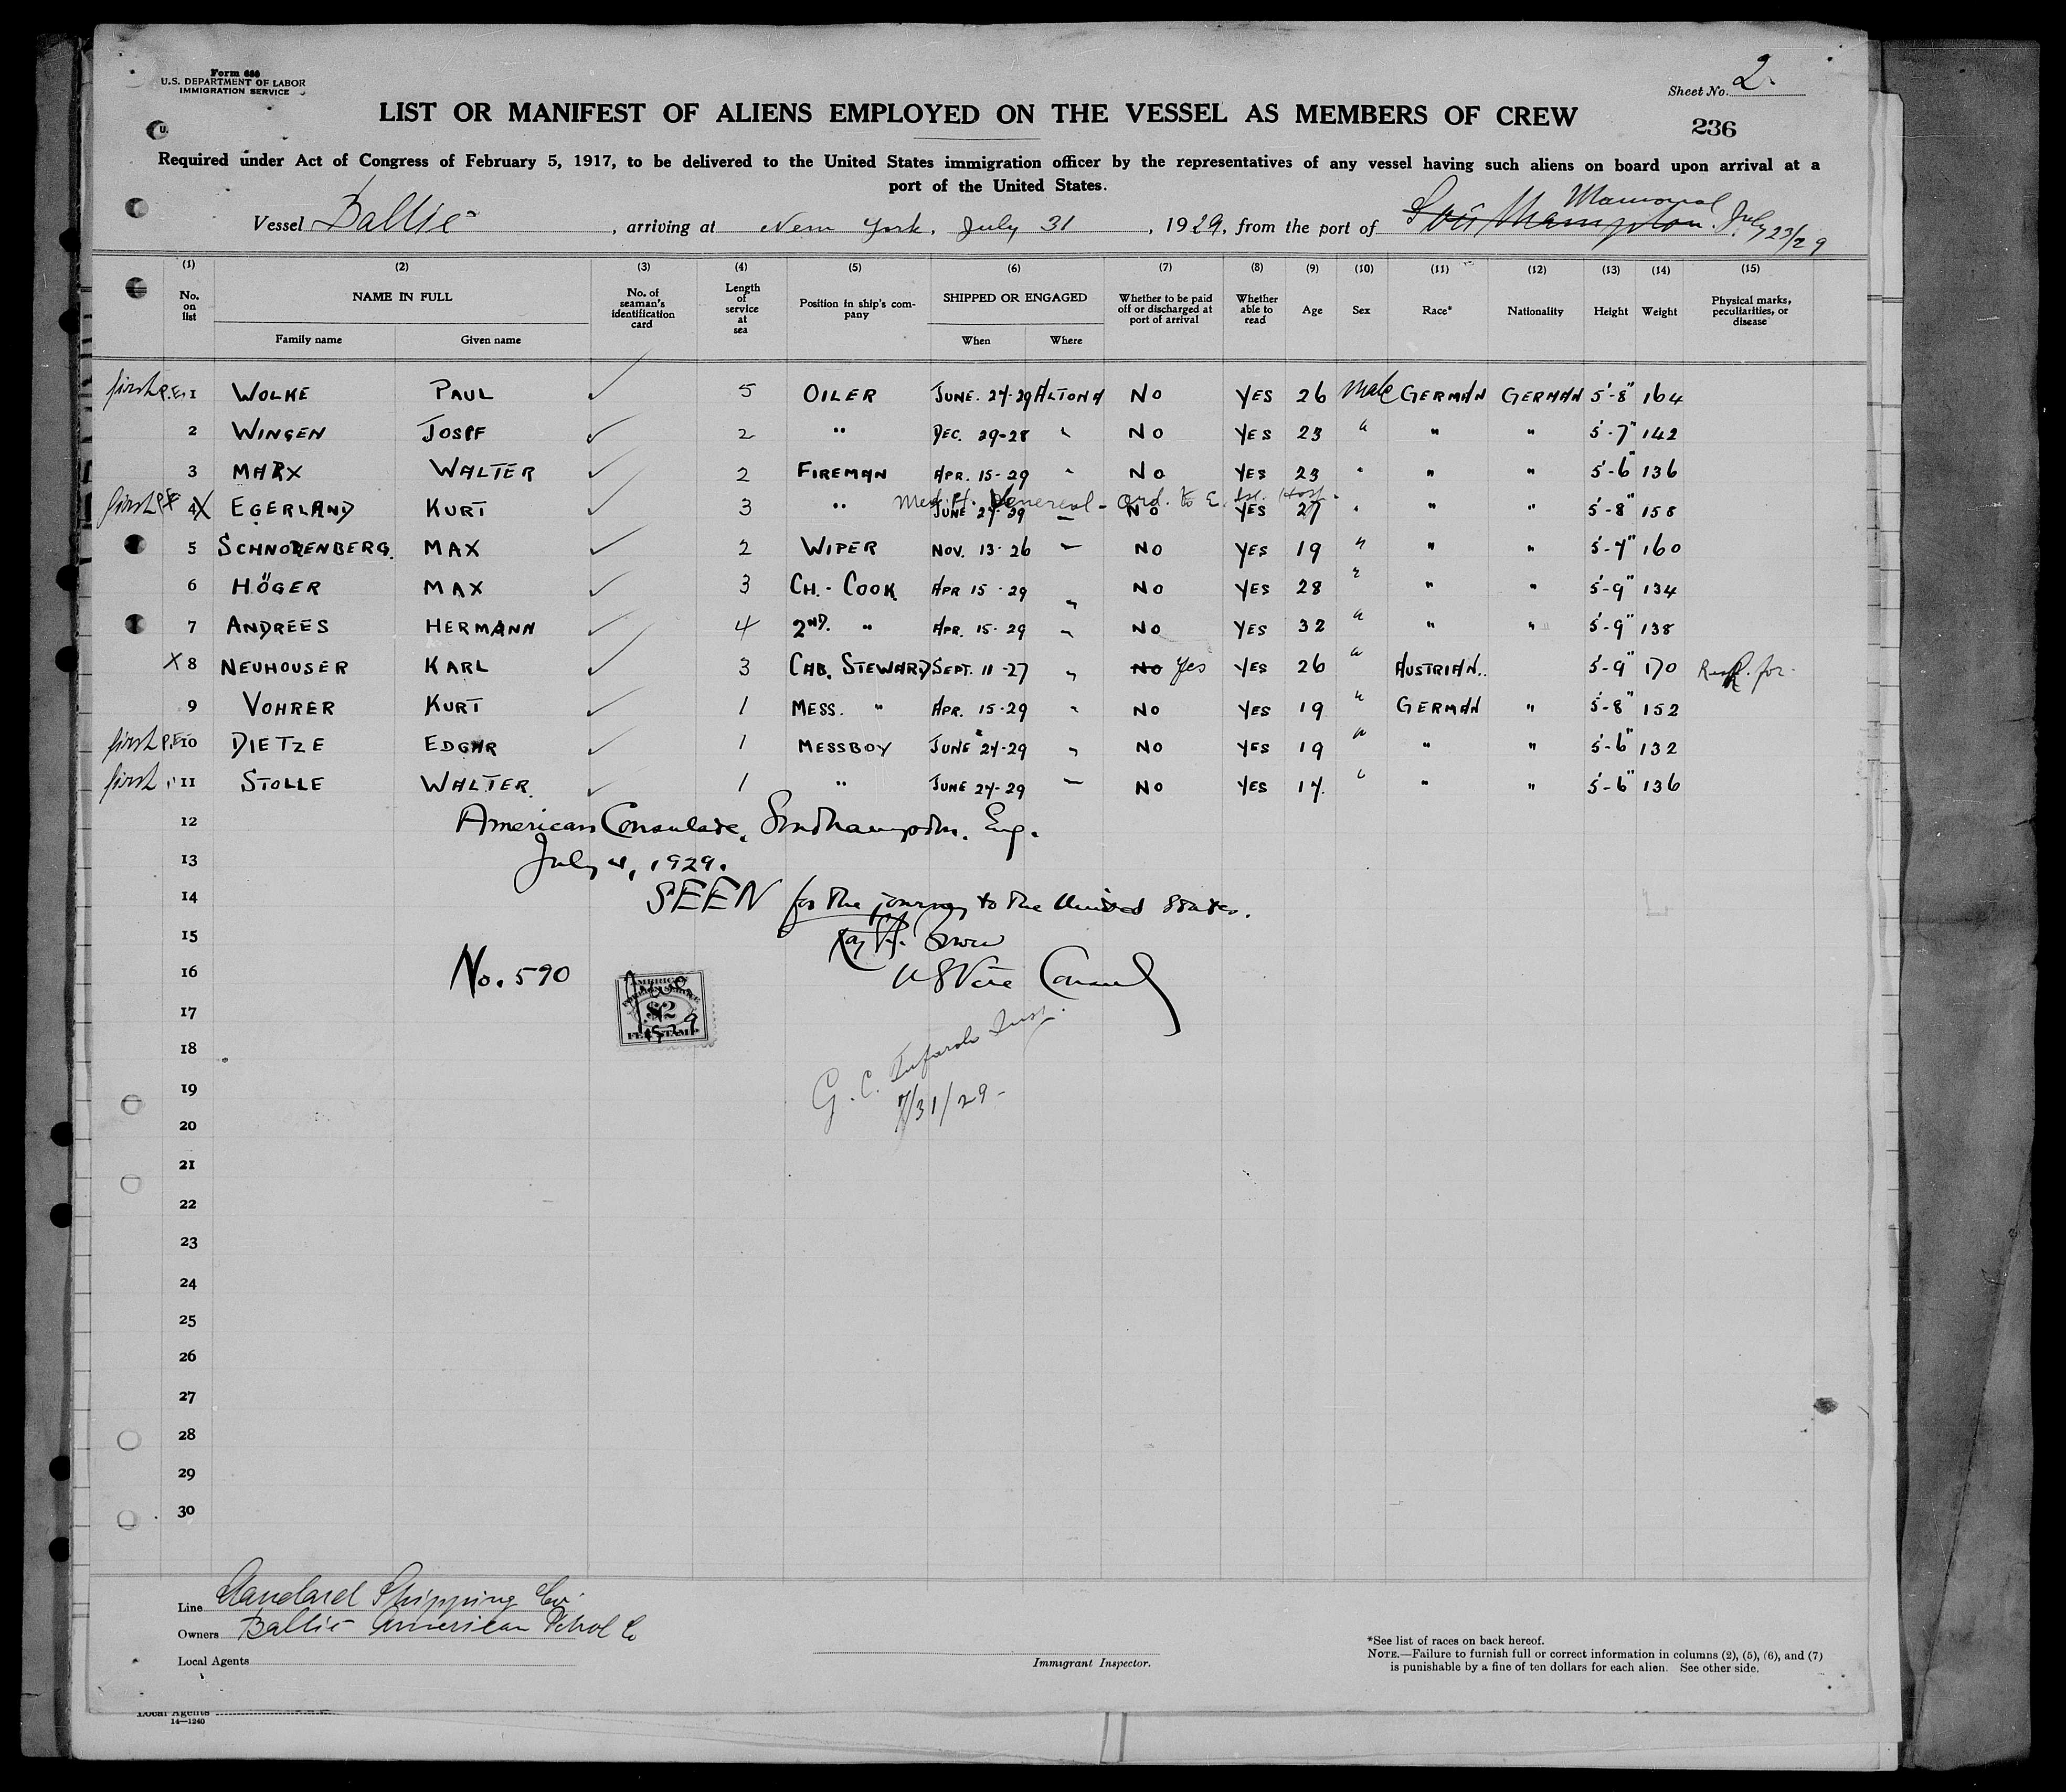 Form 680
U.S. DEPARTMENT OF LABOR
IMMIGRATION SERVICE
Sheet No. 2
LIST OR MANIFEST OF ALIENS EMPLOYED ON THE VESSEL AS MEMBERS OF CREW
236
Required under Act of Congress of February 5, 1917, to be delivered to the United States immigration officer by the representatives of any vessel having such aliens on board upon arrival at a
port of the United States.
Vessel Baltic, arriving at New York, July 31, 1929, from the port of Southampton Mamonal July 23/29
(1) (2) (3) (4) (5) (6) (7) (8) (9) (10) (11) (12) (13) (14) (15)
No. on list NAME IN FULL Family name Given name No. of seaman's identification card Length of service at sea Position in ship's company SHIPPED OR ENGAGED When Where Whether to be paid off or discharged at port of arrival Whether able to read Age Sex Race* Nationality Height Weight Physical marks, peculiarities, or disease
first P.E. 1 WOLKE PAUL ✓ 5 OILER JUNE. 24-29 ALTONA NO YES 26 Male GERMAN GERMAN 5'-8" 164
2 WINGEN JOSEF ✓ 2 " DEC. 29-28 " NO YES 23 " " " 5'-7" 142
3 MARX WALTER ✓ 2 FIREMAN APR. 15-29 " NO YES 23 " " " 5'-6" 136
Med. H. Venereal - ord. to E. Isl. Hosp.
first P.E. 4 X EGERLAND KURT ✓ 3 " JUNE 24-29 " NO YES 27 " " " 5'-8" 158
5 SCHNORENBERG. MAX ✓ 2 WIPER NOV. 13-26 " NO YES 19 " " " 5'-7" 160
6 HÖGER MAX ✓ 3 CH.-COOK APR 15-29 " NO YES 28 " " " 5'-9" 134
7 ANDREES HERMANN ✓ 4 2ND. " APR. 15-29 " NO YES 32 " " " 5'-9" 138
X 8 NEUHOUSER KARL ✓ 3 CAB. STEWARD SEPT. 11-27 " NO Yes YES 26 " AUSTRIAN.. 5'-9" 170
9 VOHRER KURT ✓ 1 MESS. " APR. 15-29 " NO YES 19 " GERMAN " 5'-8" 152
first P.E. 10 DIETZE EDGAR ✓ 1 MESSBOY JUNE 24-29 " NO YES 19 " " " 5'-6" 132
first " 11 STOLLE WALTER. ✓ 1 " JUNE 24-29 " NO YES 17. " " " 5'-6" 136
12 American Consulate, Southampton, Eng.
13 July 4, 1929.
14 SEEN for the journey to the United States.
15
16 No. 590 US Vice Consul
AMERICAN FOREIGN SERVICE $2 FEE STAMP
17
18
G. C.
19 7/31/29
20
21
22
23
24
25
26
27
28
29
30
Line Standard Shipping Co.
Owners Baltic American Petrol Co
Local Agents
Immigrant Inspector.
*See list of races on back hereof.
NOTE.—Failure to furnish full or correct information in columns (2), (5), (6), and (7)
is punishable by a fine of ten dollars for each alien. See other side.
Local Agents
14—1240